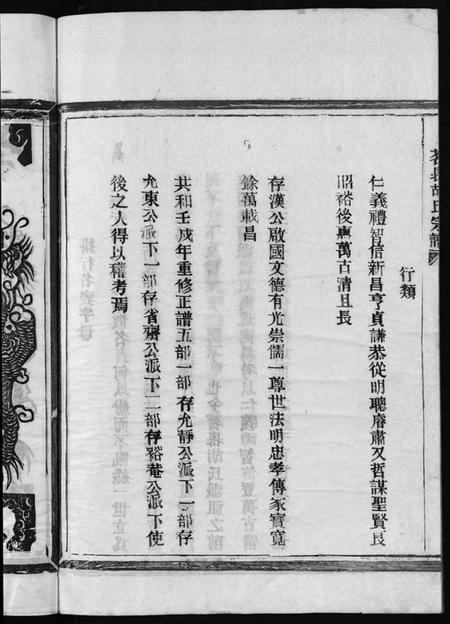 胡氏宗譜
行類
仁義禮智信新昌亨貞謙恭從明聰睿肅乂哲謀聖賢良
昭裕後惠萬古清且長
存漢公啟國文德有光崇儒一尊世法明忠孝傳家寶寬
餘萬載昌
共和壬戌年重修正譜五部一部存允靜公派下一部存
允東公派下一部存省齋公派下二部存裕菴公派下使
後之人得以稽考焉